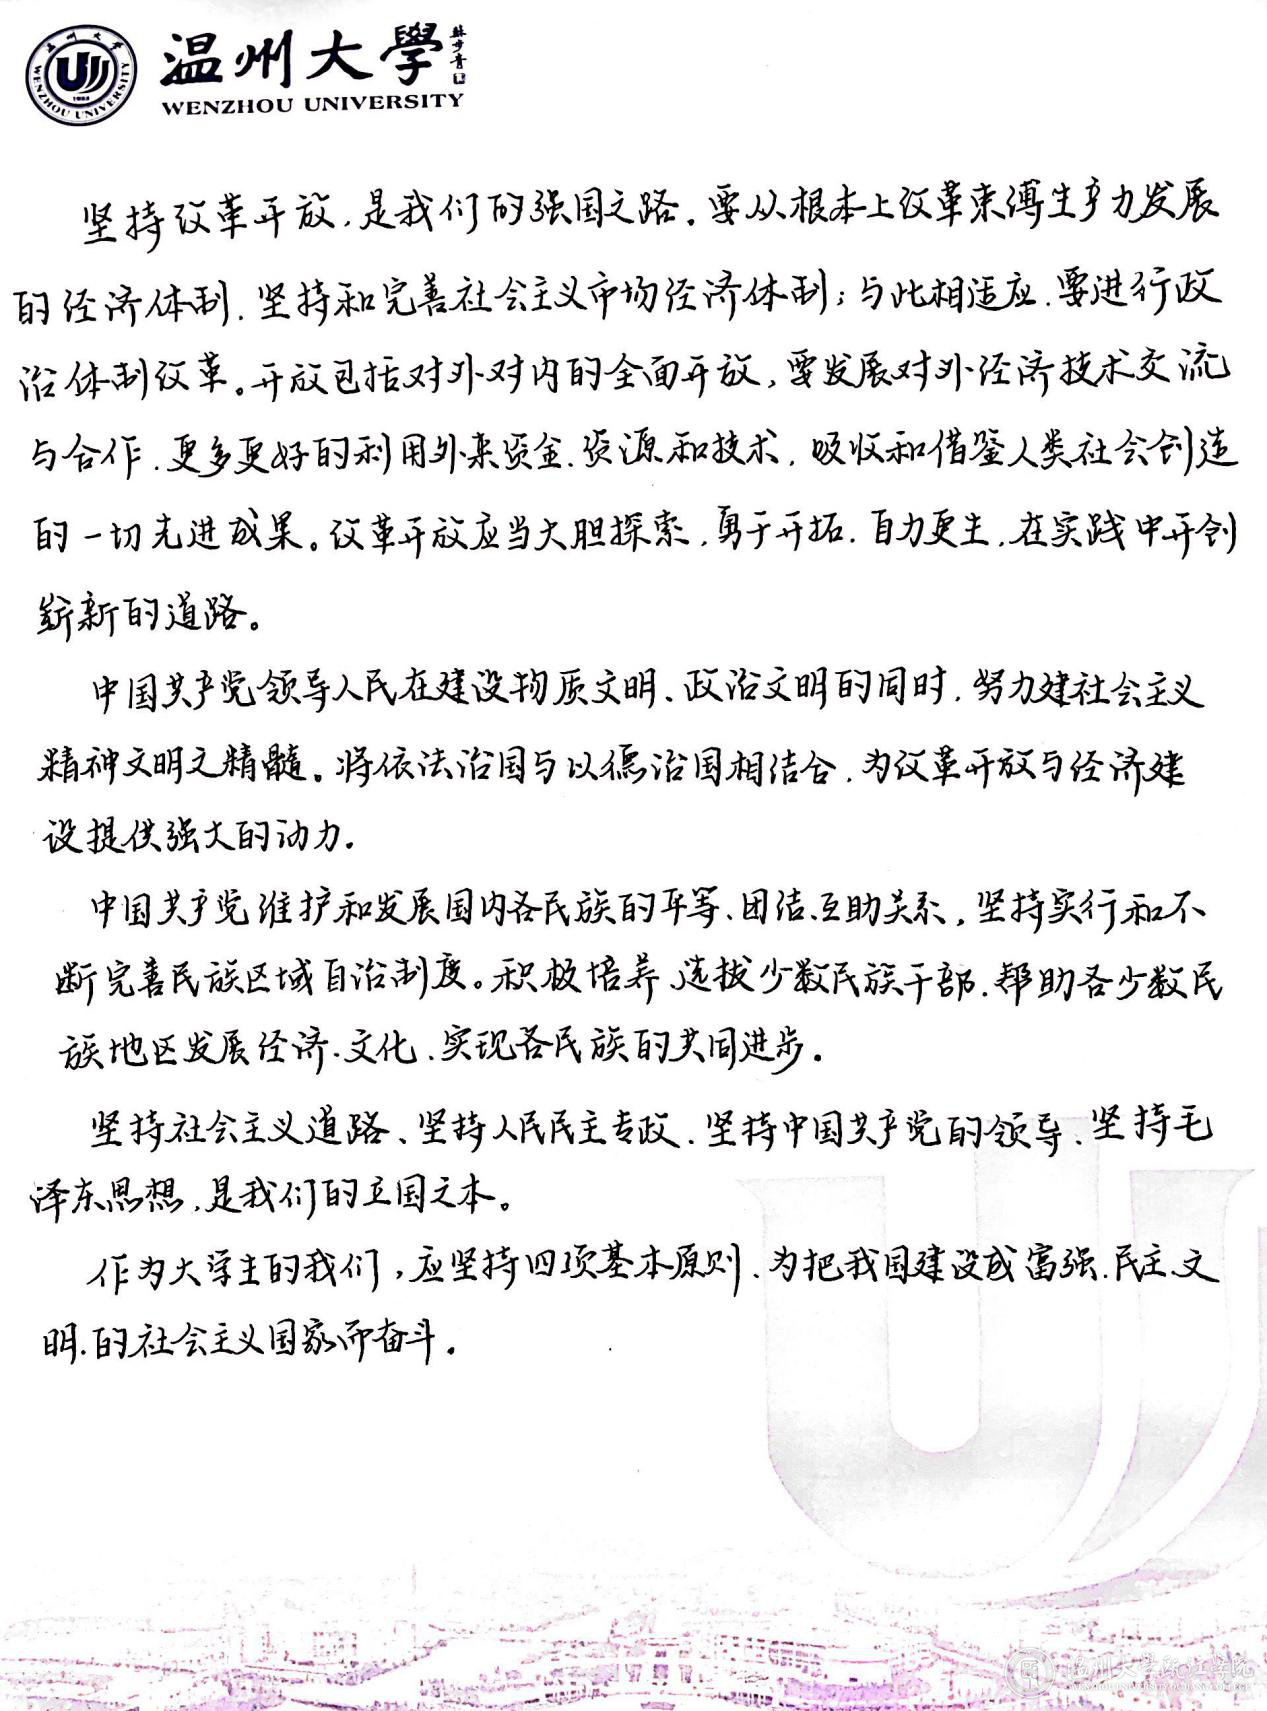 温州大學
WENZHOU UNIVERSITY
坚持改革开放,是我们的强国之路。要从根本上改革束缚生产力发展
的经济体制,坚持和完善社会主义市场经济体制;与此相适应,要进行政
治体制改革。开放包括对外对内的全面开放,要发展对外经济技术交流
与合作,更多更好的利用外来资金、资源和技术,吸收和借鉴人类社会创造
的一切先进成果。改革开放应当大胆探索,勇于开拓,自力更生,在实践中开创
崭新的道路。
中国共产党领导人民在建设物质文明、政治文明的同时,努力建社会主义
精神文明之精髓。将依法治国与以德治国相结合,为改革开放与经济建
设提供强大的动力。
中国共产党维护和发展国内各民族的平等、团结、互助关系,坚持实行和不
断完善民族区域自治制度。积极培养、选拔少数民族干部,帮助各少数民
族地区发展经济、文化,实现各民族的共同进步。
坚持社会主义道路、坚持人民民主专政、坚持中国共产党的领导、坚持毛
泽东思想,是我们的立国之本。
作为大学生的我们,应坚持四项基本原则,为把我国建设成富强、民主、文
明、的社会主义国家而奋斗。